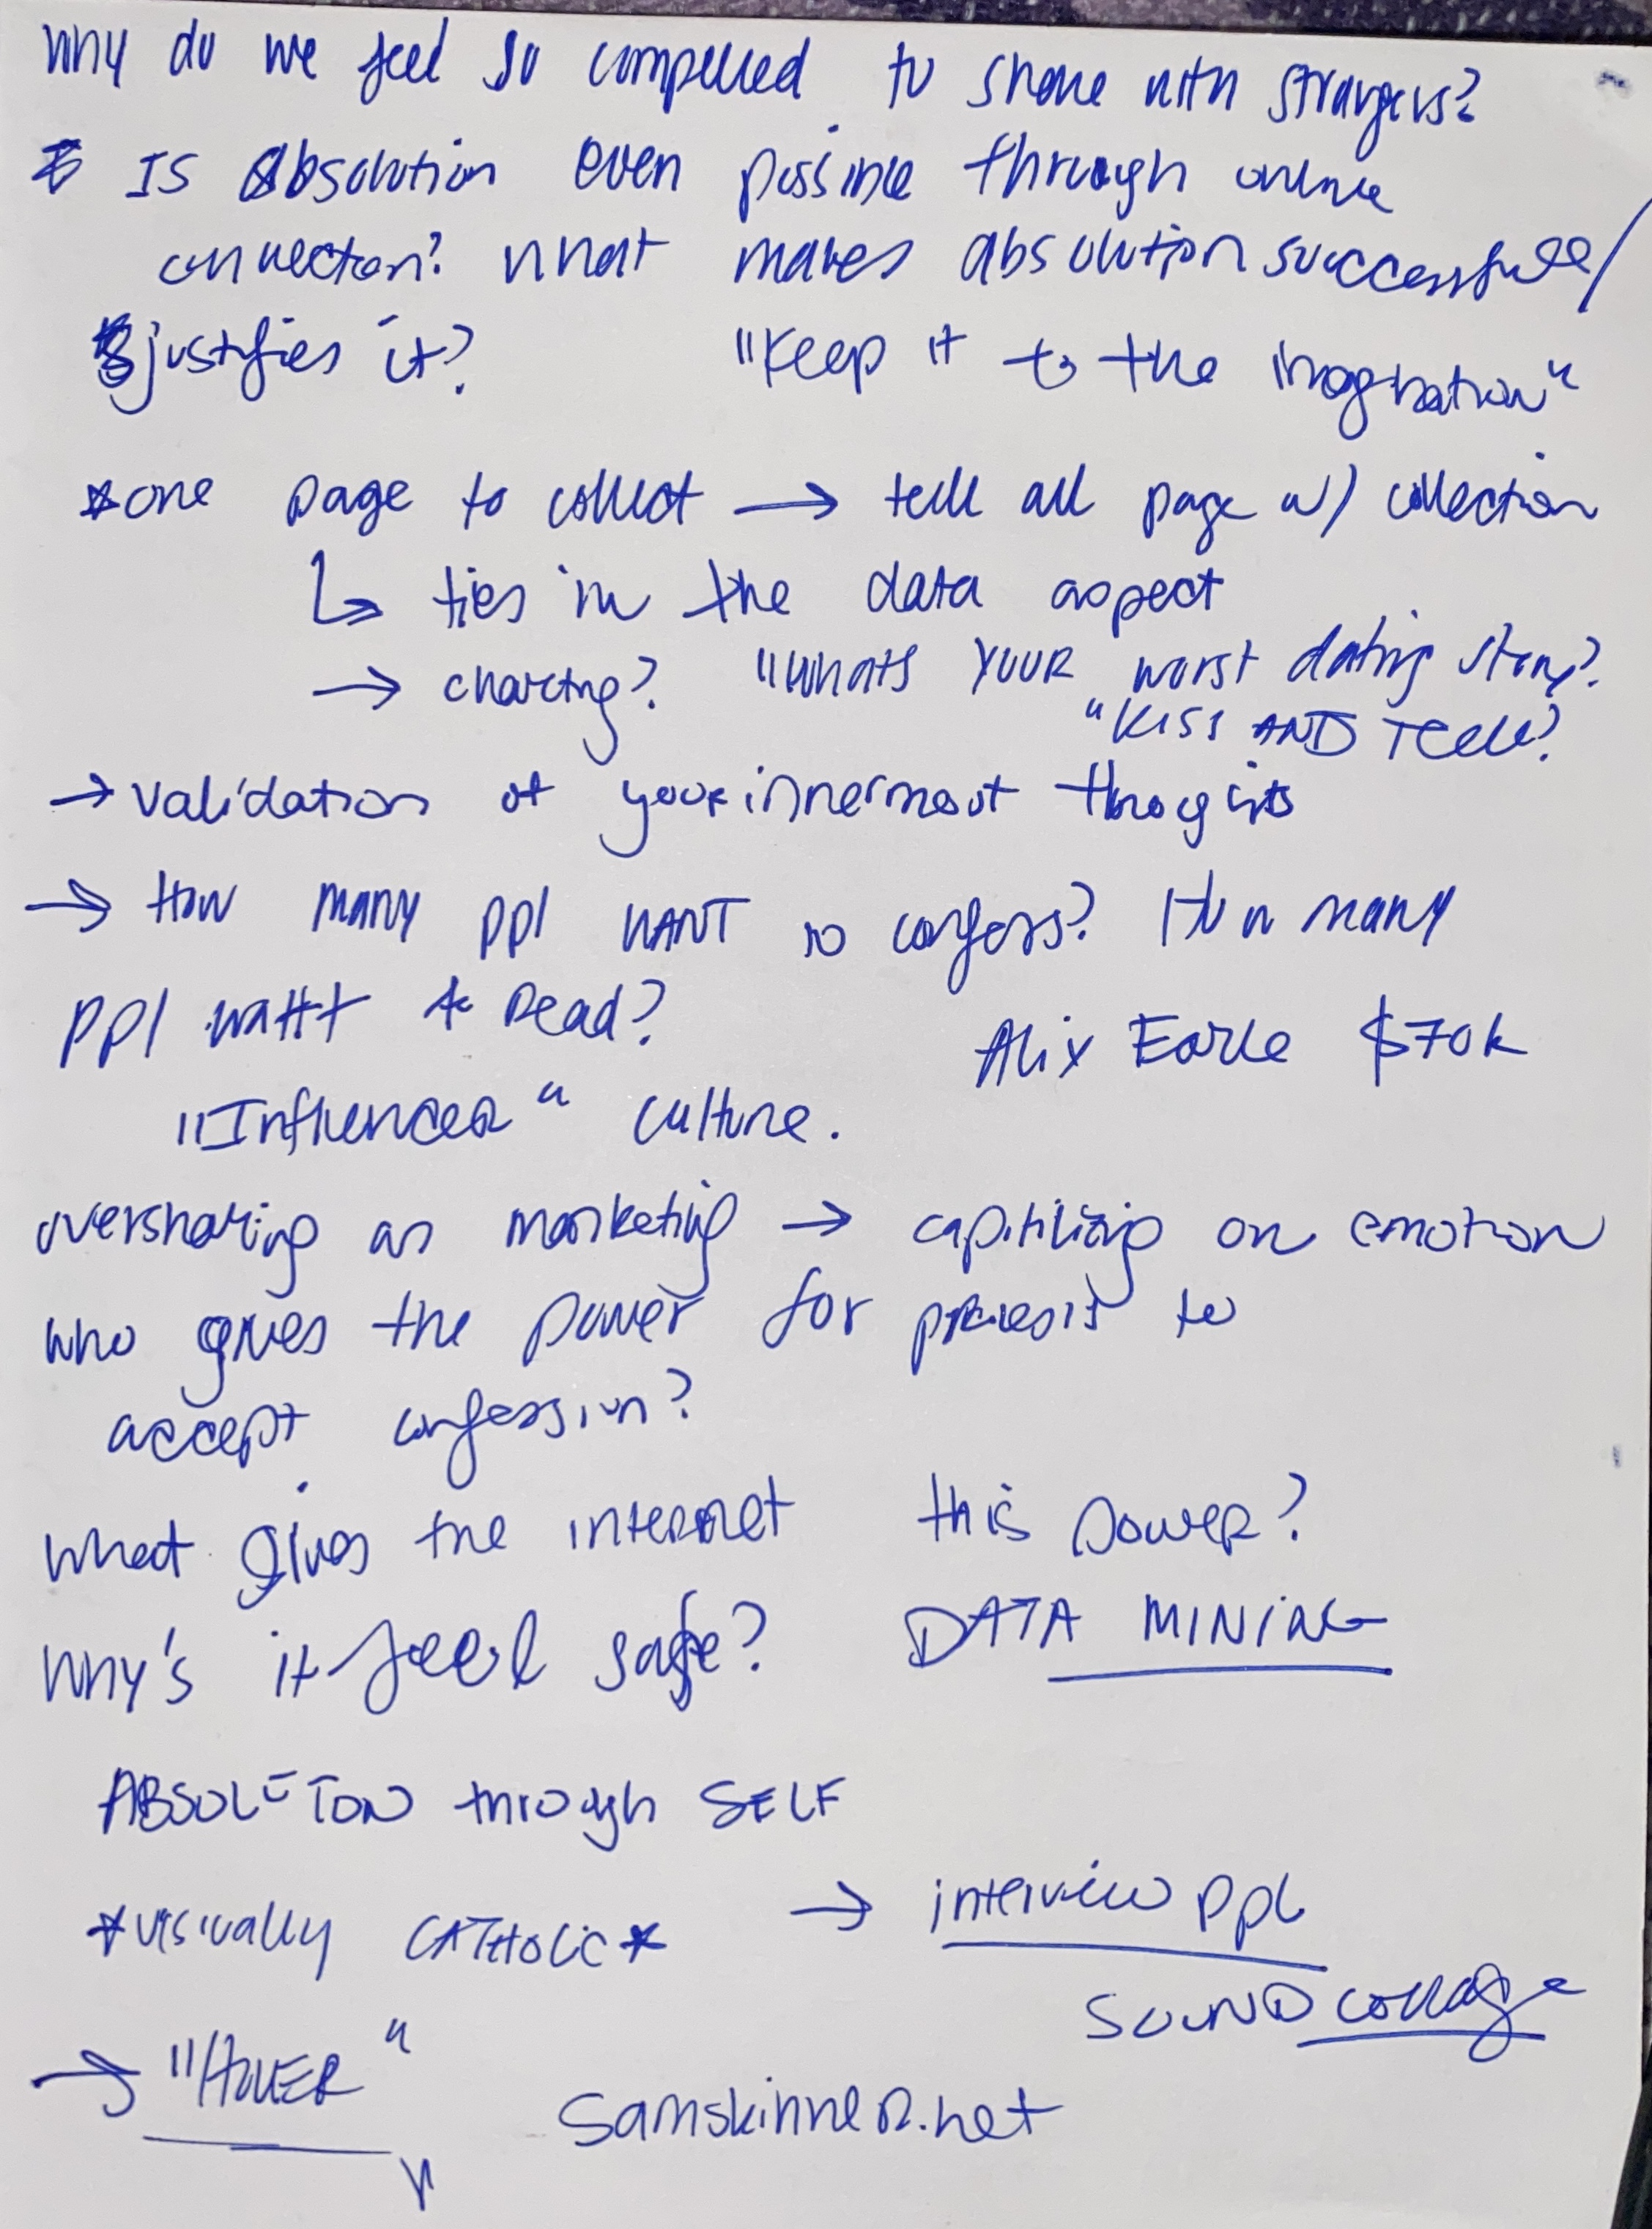 Why do we feel so compelled to share with strangers?
* IS Absolution even possible through online
connection? What makes absolution successful/
justifies it? "Keep it to the imagination"
*one page to collect → tell all page w/ collection
↳ ties in the data aspect
→ charting? "Whats YOUR worst dating story?
"KISS AND TELL?
→ validation of your innermost thoughts
→ How many ppl WANT to confess? How many
ppl want to read?
Alix Earle $70k
"Influencer" culture.
oversharing as marketing → capitilizing on emotion
who gives the power for priests to
accept confession?
what gives the internet this power?
Why's it feel safe? DATA MINING
ABSOLUTION through SELF
*visually CATHOLIC* → interview ppl
SOUND collage
→ "HOVER"
samskinner.net